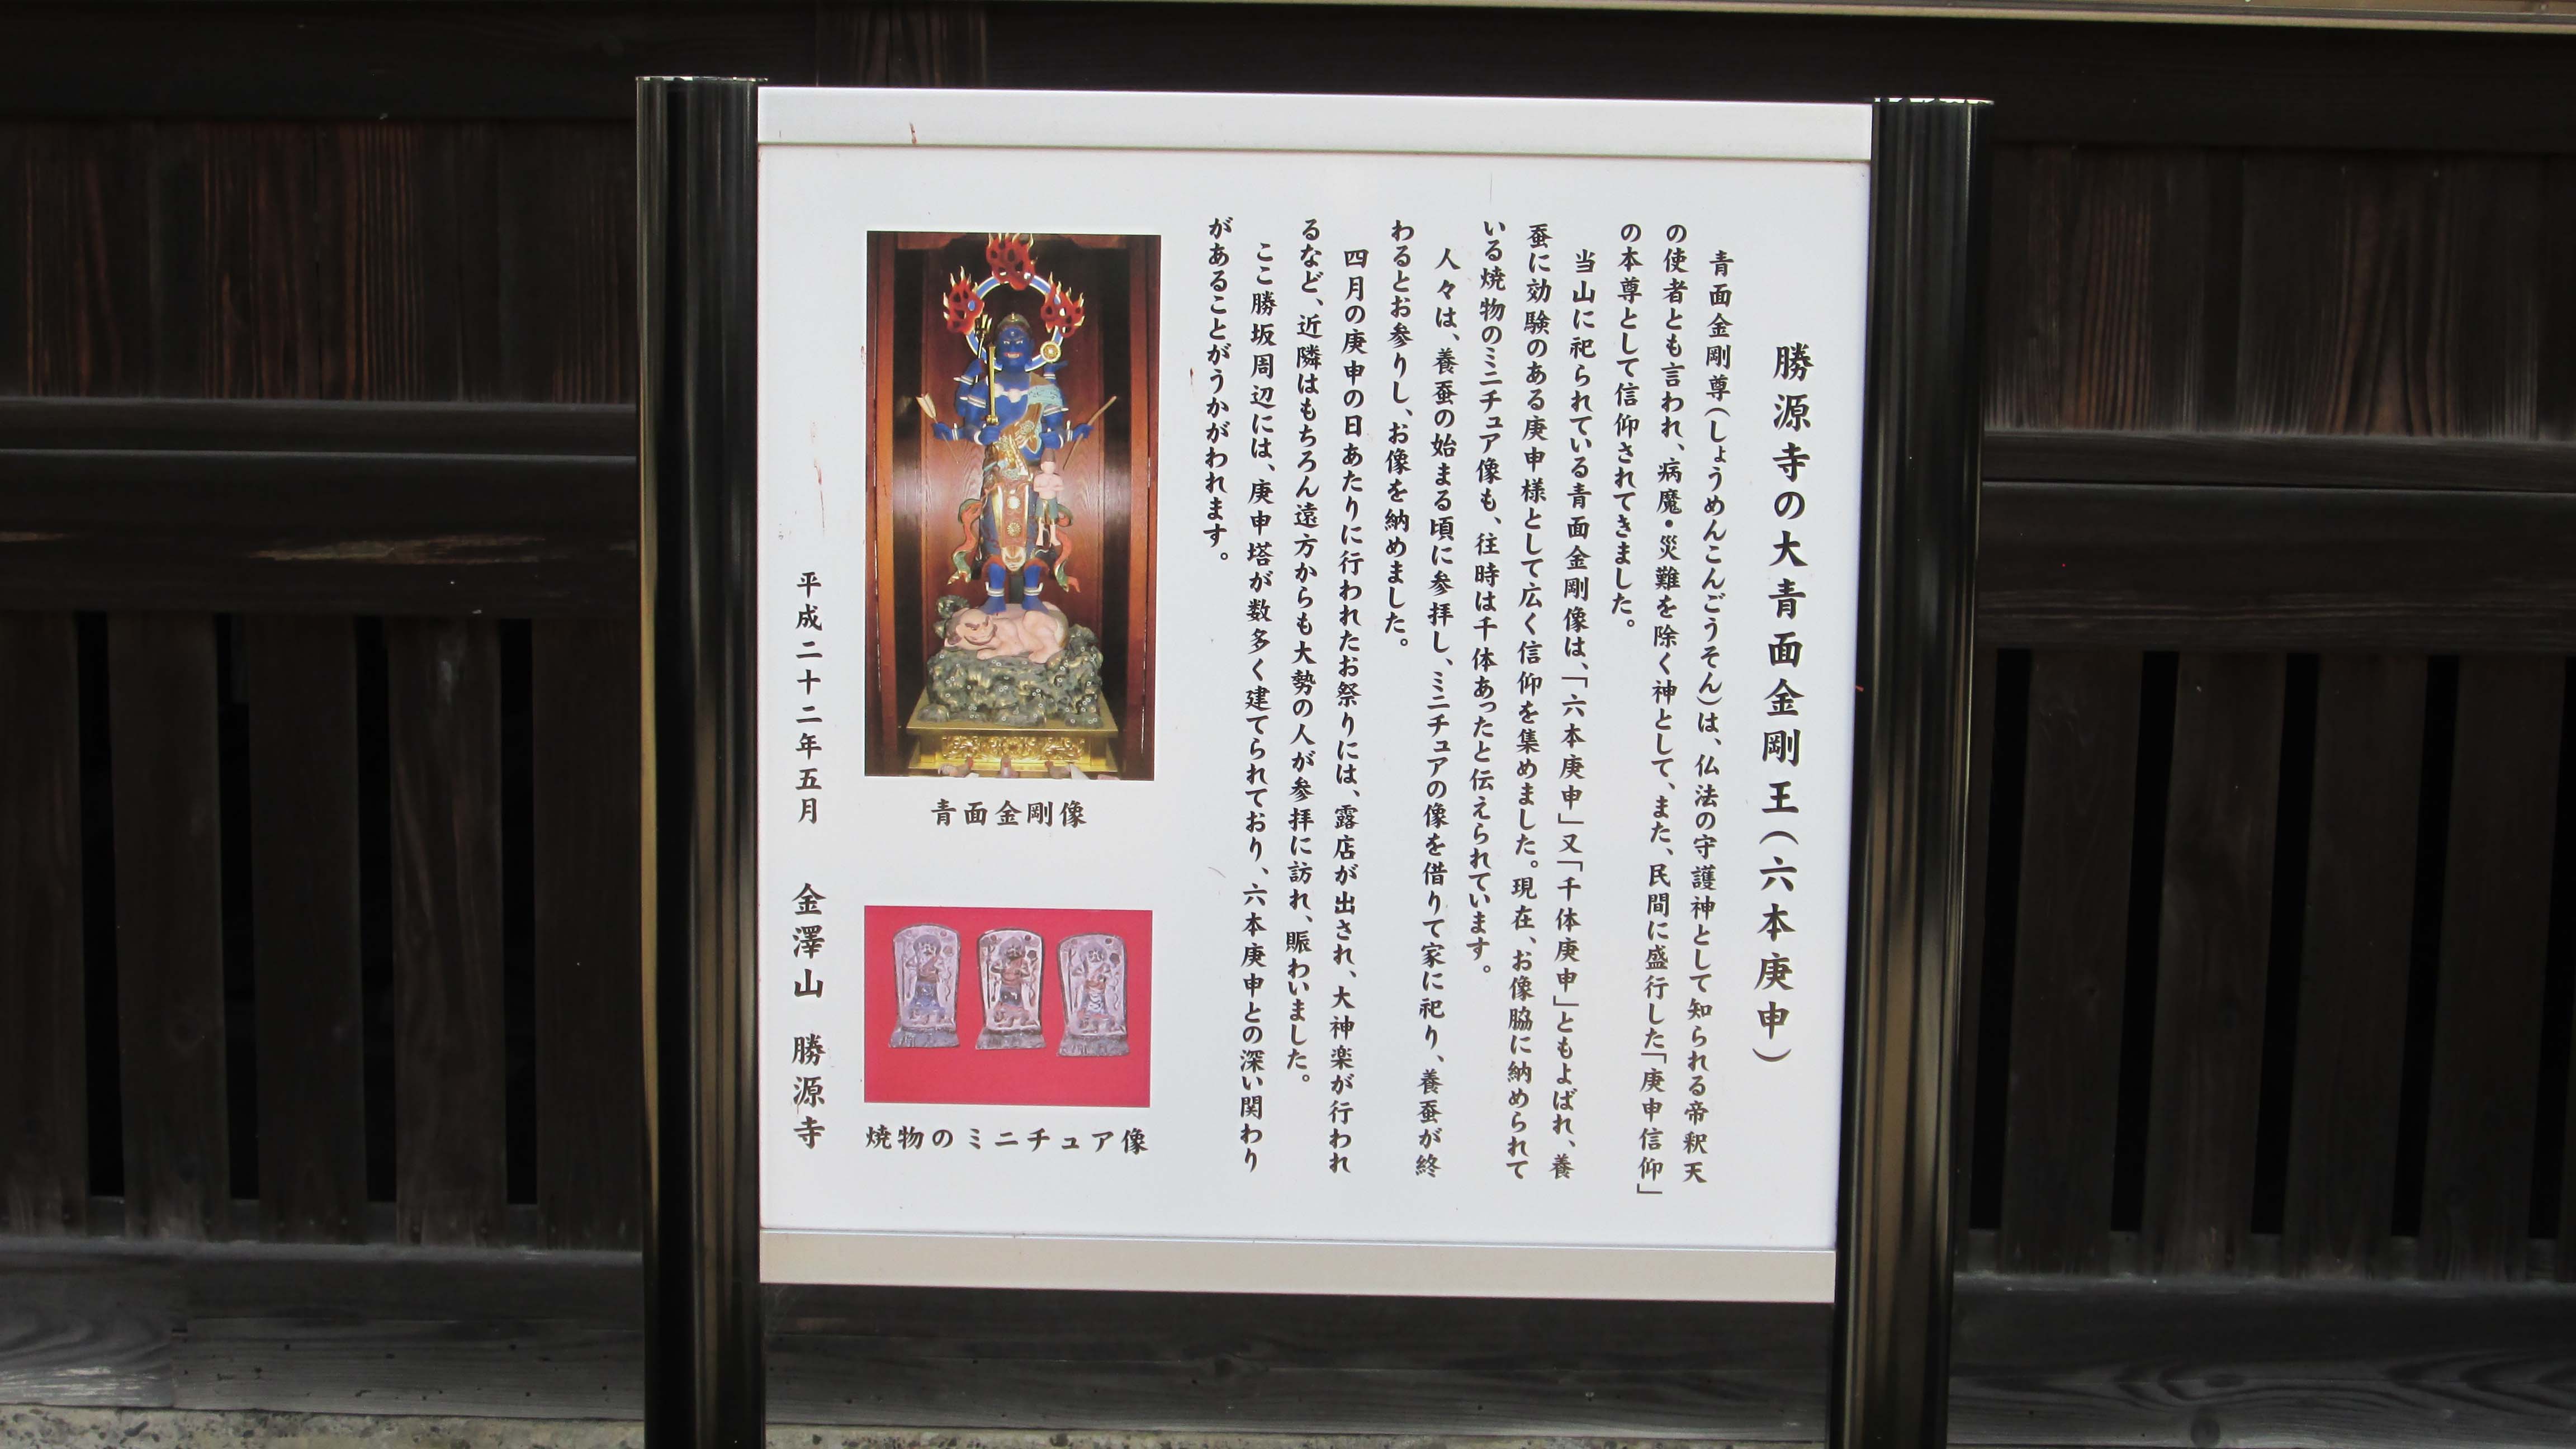 勝源寺の大青面金剛王（六本庚申）
青面金剛尊（しょうめんこんごうそん）は、仏法の守護神として知られる帝釈天
の使者とも言われ、病魔・災難を除く神として、また、民間に盛行した「庚申信仰」
の本尊として信仰されてきました。
当山に祀られている青面金剛像は、「六本庚申」又「千体庚申」ともよばれ、養
蚕に効験のある庚申様として広く信仰を集めました。現在、お像脇に納められて
いる焼物のミニチュア像も、往時は千体あったと伝えられています。
人々は、養蚕の始まる頃に参拝し、ミニチュアの像を借りて家に祀り、養蚕が終
わるとお参りし、お像を納めました。
四月の庚申の日あたりに行われたお祭りには、露店が出され、大神楽が行われ
るなど、近隣はもちろん遠方からも大勢の人が参拝に訪れ、賑わいました。
ここ勝坂周辺には、庚申塔が数多く建てられており、六本庚申との深い関わり
があることがうかがわれます。
青面金剛像
焼物のミニチュア像
平成二十二年五月　金澤山　勝源寺